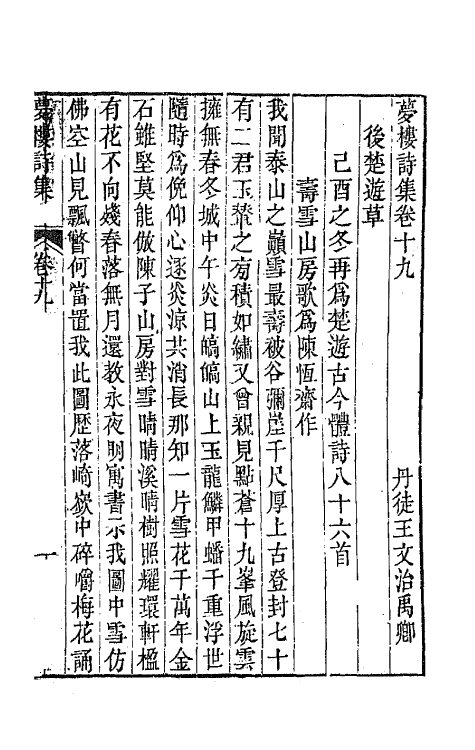 夢樓詩集卷十九
丹徒王文治禹卿
後楚遊草
己酉之冬再爲楚遊古今體詩八十六首
壽雪山房歌爲陳恆齋作
我聞泰山之巔雪最壽被谷彌崖千尺厚上古登封七十
有二君玉輦之旁積如繡又曾親見點蒼十九峯風旋雲
擁無春冬城中午炎日皜皜山上玉龍鱗甲蟠千重浮世
隨時爲俛仰心逐炎涼共消長那知一片雪花千萬年金
石雖堅莫能倣陳子山房對雪晴晴溪晴樹照耀環軒楹
有花不向殘春落無月還教永夜明寓書示我圖中雪仿
佛空山見飄瞥何當置我此圖歷落崎嶔中碎嚼梅花誦
夢樓詩集
卷十九
一